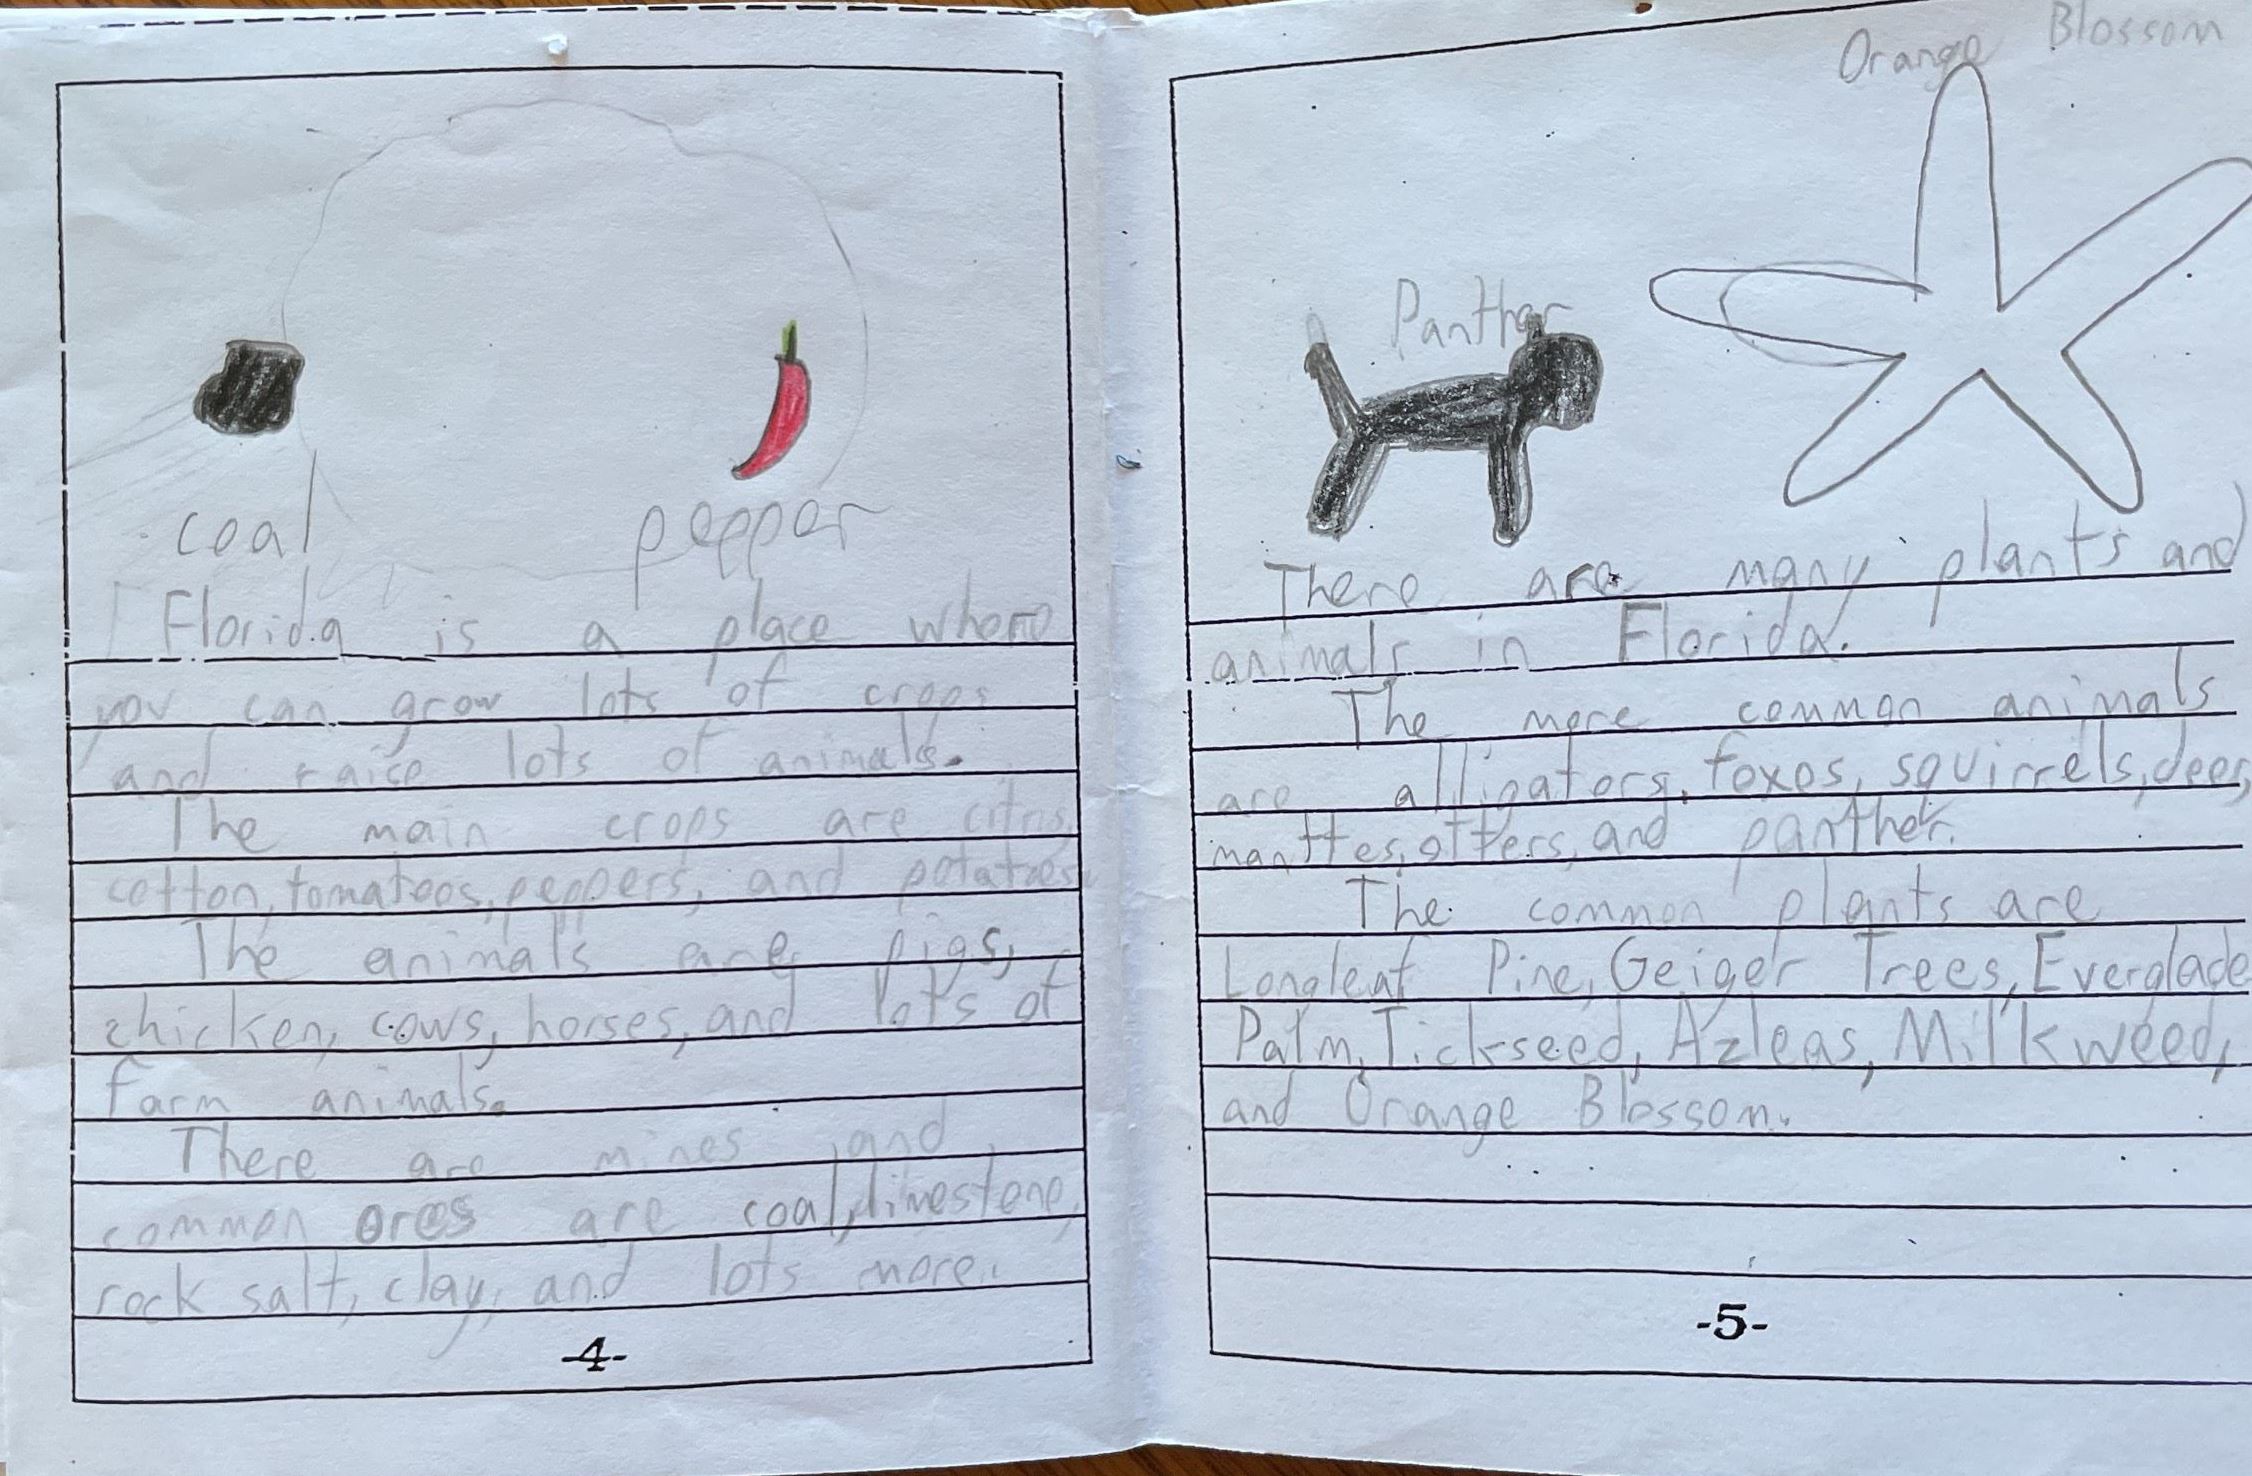 coal
pepper
Florida is a place where
you can grow lots of crops
and raise lots of animals.
The main crops are citrus,
cotton, tomatoes, peppers, and potatoes.
The animals are pigs,
chicken, cows, horses, and lots of
farm animals.
There are mines and
common ores are coal, limestone,
rock salt, clay, and lots more.
-4-
Orange Blossom
Panther
There are many plants and
animals in Florida.
The more common animals
are alligators, foxes, squirrels, deer,
manttes, otters, and panther.
The common plants are
Longleaf Pine, Geiger Trees, Everglade
Palm, Tickseed, Azleas, Milkweed,
and Orange Blossom.
-5-